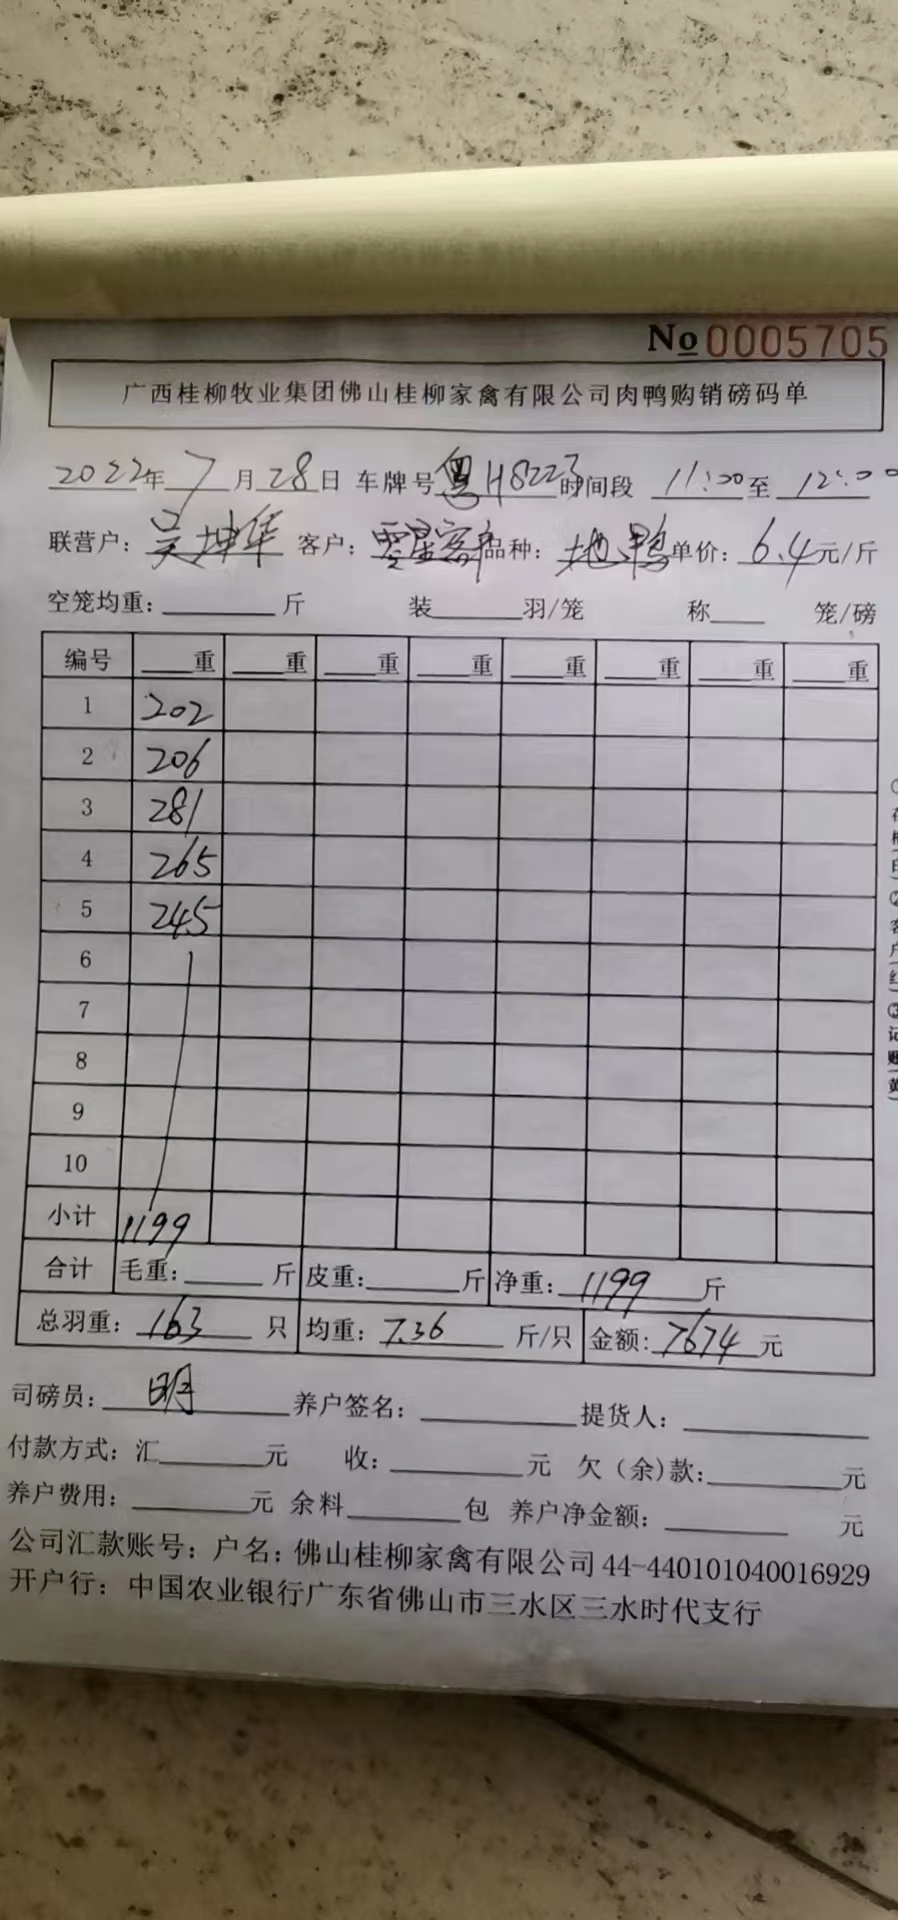 No 0005705
广西桂柳牧业集团佛山桂柳家禽有限公司肉鸭购销磅码单
2022年 7 月 28 日 车牌号 粤H8223 时间段 11:00 至 12:00
联营户: 吴坤华 客户: 零星客户 品种: 地鸭 单价: 6.4 元/斤
空笼均重: 斤 装 羽/笼 称 笼/磅
编号 重 重 重 重 重 重 重 重
1 202
2 206
3 281
4 265
5 245
6
7
8
9
10
小计 1199
合计 毛重: 斤 皮重: 斤 净重: 1199 斤
总羽重: 163 只 均重: 7.36 斤/只 金额: 7674 元
司磅员: 明 养户签名: 提货人:
付款方式: 汇 元 收: 元 欠(余)款: 元
养户费用: 元 余料 包 养户净金额: 元
公司汇款账号: 户名: 佛山桂柳家禽有限公司 44-440101040016929
开户行: 中国农业银行广东省佛山市三水区三水时代支行
客户(红)③记账(黄)